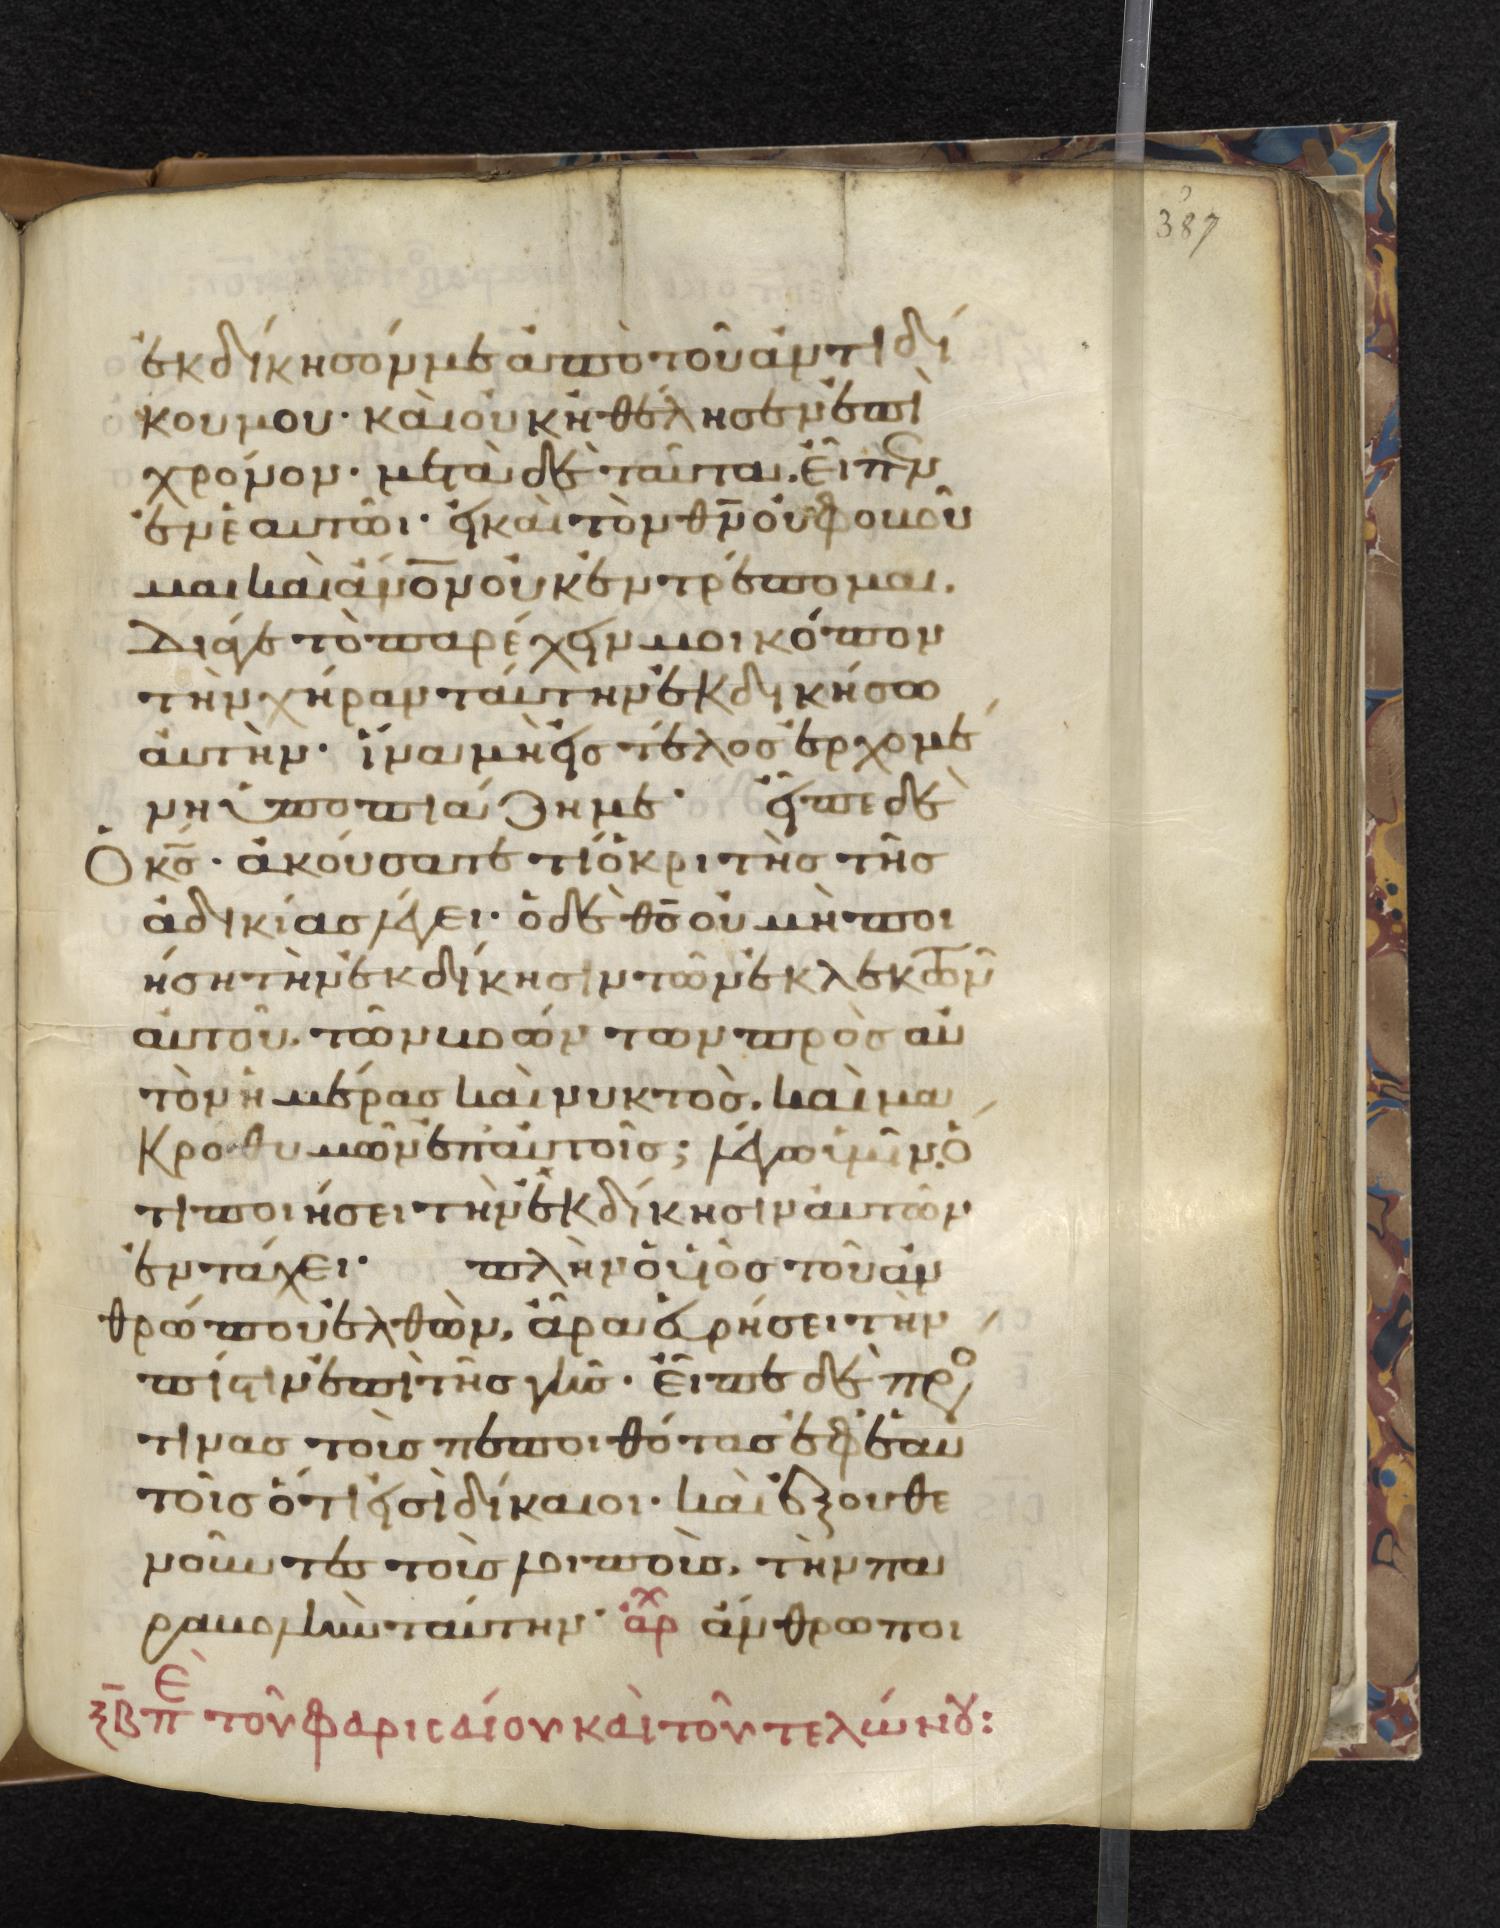 387
ἐκδίκησόν με ἀπὸ τοῦ ἀντιδί
κου μου· καὶ οὐκ ἠθέλησεν ἐπὶ
χρόνον· μετὰ δὲ ταῦτα, εἶπεν
ἐν ἑαυτῶι· εἰ καὶ τὸν θν̅ οὐ φοβοῦ
μαι καὶ ἀν̅ο̅ν οὐκ ἐντρέπομαι.
Διά γε τὸ παρέχειν μοι κόπον
τὴν χήραν ταύτην ἐκδικήσω
ἀυτὴν· ἵνα μὴ εἰς τέλος ἐρχομέ
νη ὑποπιάζη με· εἶπε δὲ
Ὁ κς̅· ἀκούσατε τί ὁ κριτὴς τῆς
ἀδικίας λέγει· ὁ δὲ θς̅ οὐ μὴ ποι
ήση τὴν ἐκδίκησιν τῶν ἐκλεκτῶν
ἀυτοῦ, τῶν βοών των πρὸς αὐ
τὸν ἡμέρας καὶ νυκτὸς, καὶ μα
κροθυμῶν ἐπ' ἀυτοῖς; λέγω ὑμῖν, ὅ
τι ποιήσει τὴν ἐκδίκησιν ἀυτῶν
ἐν τάχει· πλὴν ὁ υἱὸς τοῦ ἀν
θρώπου ἐλθὼν, ἆρα εὑρήσει τὴν
πίστιν ἐπὶ τῆς γῆς· εἶπε δὲ πρό
τινας τοὺς πεποιθότας ἐφ' ἑαυ
τοῖς ὅτι εἰσὶ δίκαιοι· καὶ ἐξουθε
νοῦντας τοὺς λοιποὺς, τὴν πα
ραβολὴν ταύτην· ἀρχ ἄνθρωποι
ξ̅β̅ πε τοῦ φαρισαίου καὶ τοῦ τελώνου: